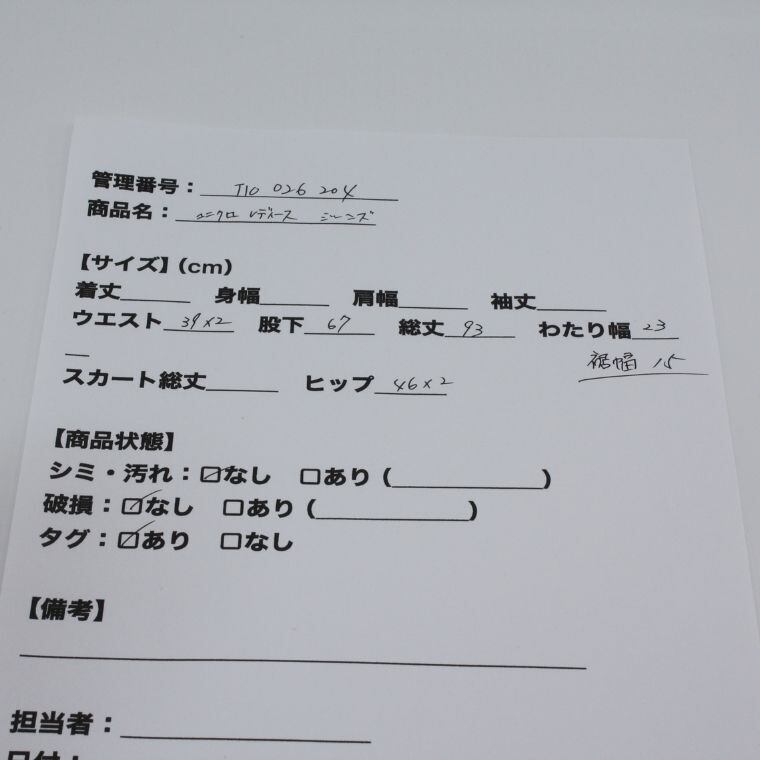 管理番号：T10 026 204
商品名：ユニクロ レディース ジーンズ
【サイズ】(cm)
着丈______ 身幅______ 肩幅______ 袖丈______
ウエスト 39×2 股下 67 総丈 93 わたり幅 23
裾幅 15
スカート総丈______ ヒップ 46×2
【商品状態】
シミ・汚れ：☑なし □あり (____________)
破損：☑なし □あり (____________)
タグ：☑あり □なし
【備考】
担当者：
日付：